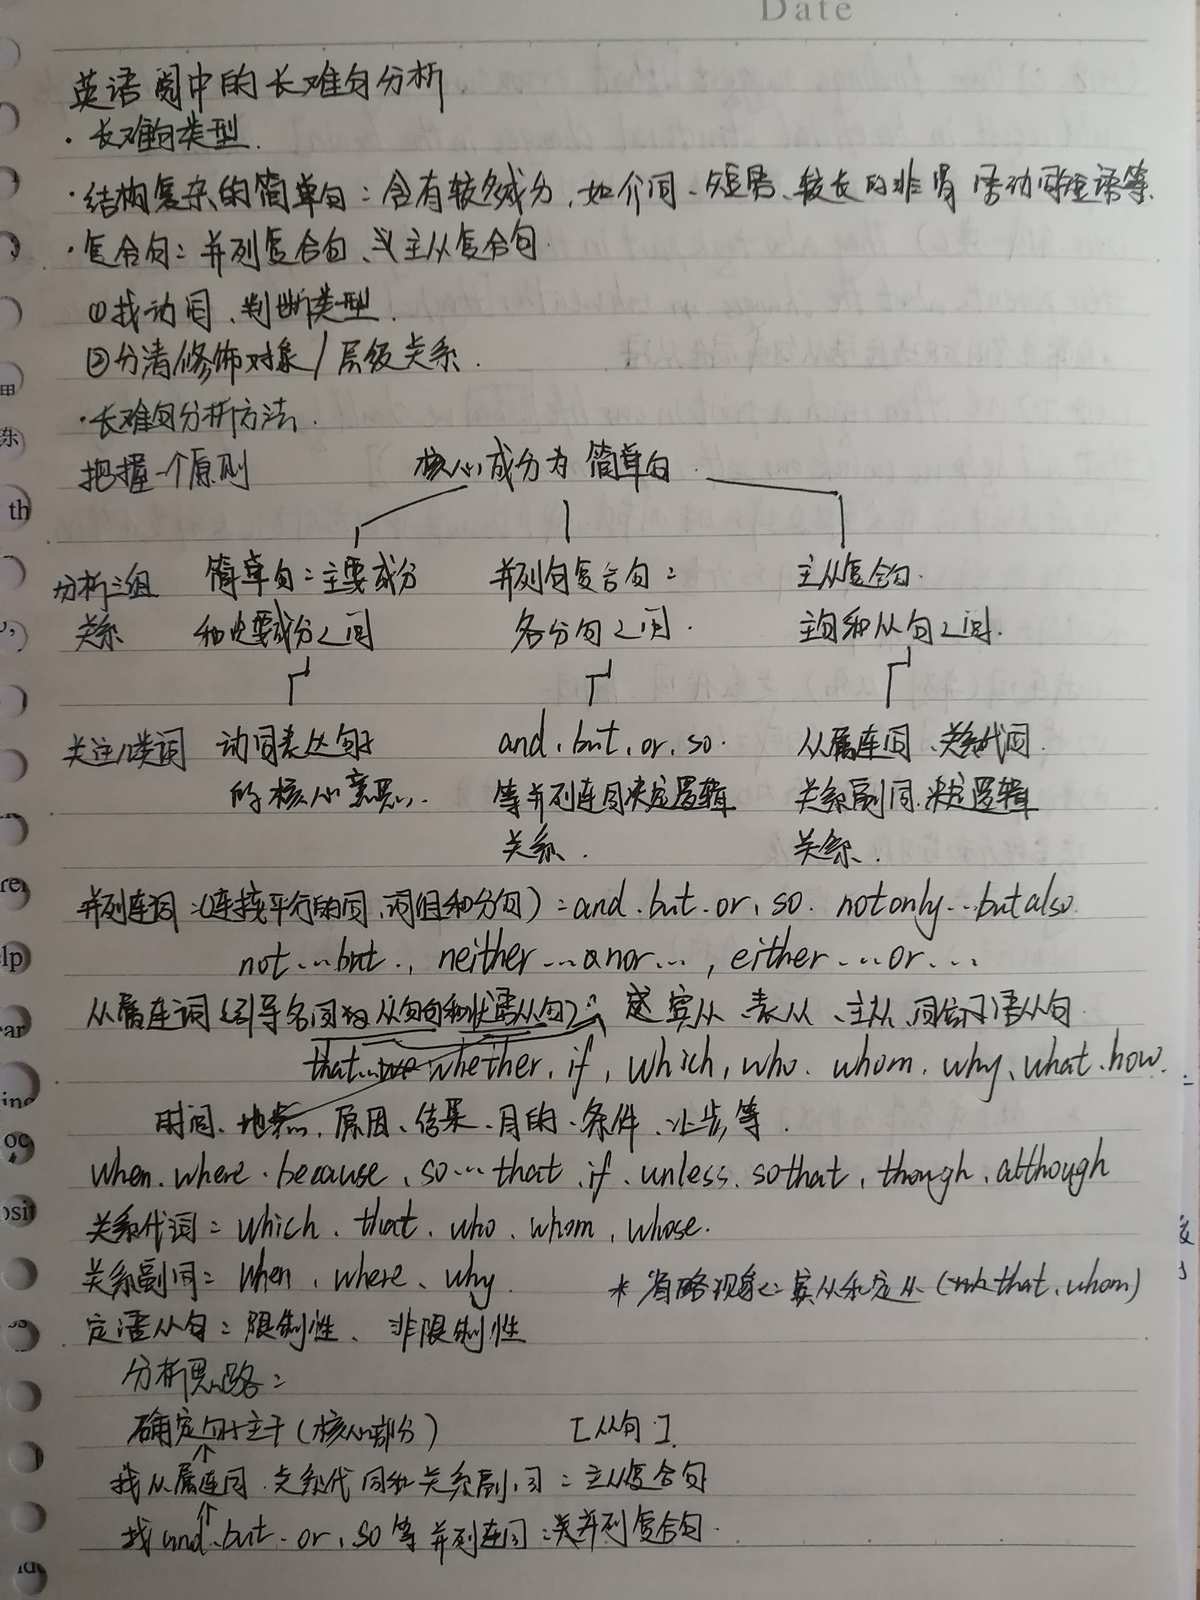 Date
英语阅中的长难句分析
· 长难句类型.
· 结构复杂的简单句：含有较多成分，如介词、短语、较长的非谓语动词短语等.
· 复合句：并列复合句、主从复合句.
①找动词、判断类型.
②分清修饰对象/层级关系.
· 长难句分析方法.
把握一个原则 核心成分为简单句.
分析三组 简单句：主要成分 并列句复合句： 主从复合句.
关系 和次要成分之间 各分句之间. 主句和从句之间.
关注几类词 动词表达句子 and, but, or, so. 从属连词、关系代词.
的核心意思. 等并列连词决定逻辑 关系副词.决定逻辑
关系. 关系.
并列连词：(连接平行的词、词组和分句)：and. but. or, so. not only...but also.
not...but., neither...nor..., either...or...
从属连词(引导名词性从句和状语从句)： 宾从、表从、主从、同位语从句
whether, if, which, who. whom. why, what. how.
时间、地点、原因、结果、目的、条件、让步,等.
when. where. because, so...that. if. unless. so that, though, although
关系代词：which. that. who. whom, whose.
关系副词：when, where、why. * 省略现象：宾从和定从 (that, whom)
定语从句：限制性、非限制性
分析思路：
确定句子主干(核心部分) [从句].
找从属连词.关系代词和关系副词：主从复合句
找and.but.or, so等并列连词：并列复合句.
th
lp
ar